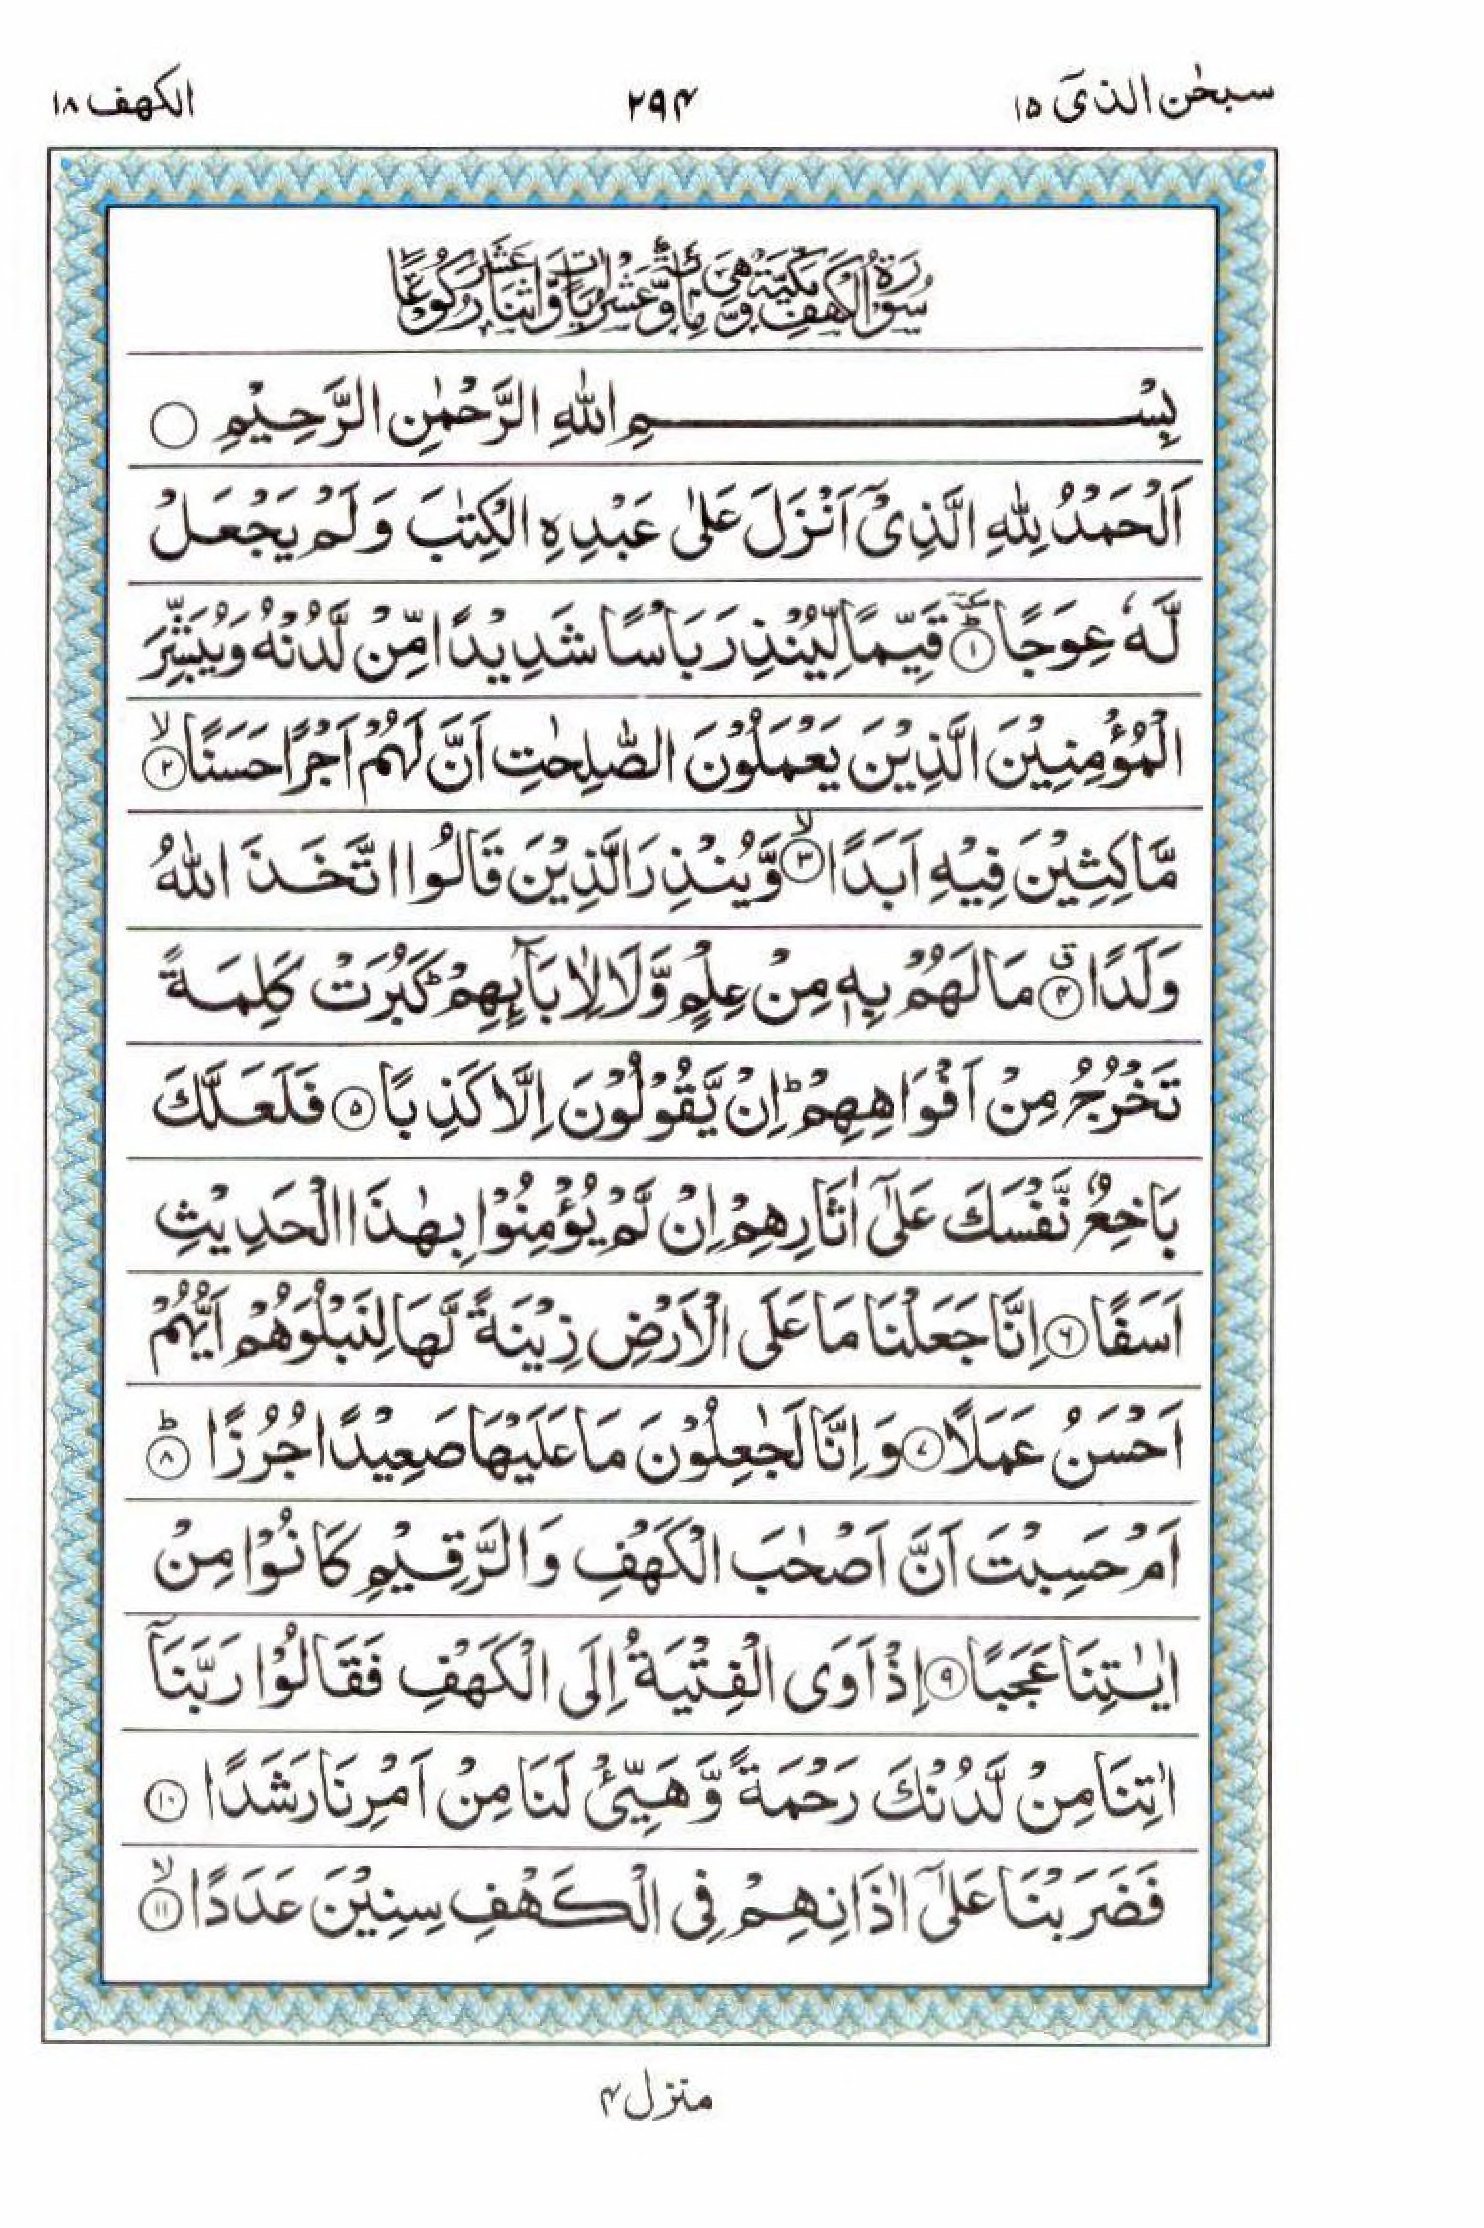 سبحٰن الذی ١٥
٢٩۴
الكهف ١٨
سُوْرَةُ الْكَهْفِ مَكِّيَّةٌ وَّهِيَ مِائَةٌ وَّعَشْرُ اٰيَاتٍ وَّاثْنَا عَشَرَ رُكُوْعًا
بِسْمِ اللّٰهِ الرَّحْمٰنِ الرَّحِيْمِ ۝
اَلْحَمْدُ لِلّٰهِ الَّذِیْۤ اَنْزَلَ عَلٰی عَبْدِهِ الْكِتٰبَ وَ لَمْ یَجْعَلْ
لَّهٗ عِوَجًا ؕ ١ قَیِّمًا لِّیُنْذِرَ بَاْسًا شَدِیْدًا مِّنْ لَّدُنْهُ وَ یُبَشِّرَ
الْمُؤْمِنِیْنَ الَّذِیْنَ یَعْمَلُوْنَ الصّٰلِحٰتِ اَنَّ لَهُمْ اَجْرًا حَسَنًا ۙ ٢
مَّاكِثِیْنَ فِیْهِ اَبَدًا ۙ ٣ وَّ یُنْذِرَ الَّذِیْنَ قَالُوا اتَّخَذَ اللّٰهُ
وَلَدًا ۗ ۴ مَا لَهُمْ بِهٖ مِنْ عِلْمٍ وَّ لَا لِاٰبَآىِٕهِمْ ؕ كَبُرَتْ كَلِمَةً
تَخْرُجُ مِنْ اَفْوَاهِهِمْ ؕ اِنْ یَّقُوْلُوْنَ اِلَّا كَذِبًا ۵ فَلَعَلَّكَ
بَاخِعٌ نَّفْسَكَ عَلٰۤی اٰثَارِهِمْ اِنْ لَّمْ یُؤْمِنُوْا بِهٰذَا الْحَدِیْثِ
اَسَفًا ۶ اِنَّا جَعَلْنَا مَا عَلَی الْاَرْضِ زِیْنَةً لَّهَا لِنَبْلُوَهُمْ اَیُّهُمْ
اَحْسَنُ عَمَلًا ۷ وَ اِنَّا لَجٰعِلُوْنَ مَا عَلَیْهَا صَعِیْدًا جُرُزًا ؕ ٨
اَمْ حَسِبْتَ اَنَّ اَصْحٰبَ الْكَهْفِ وَ الرَّقِیْمِ كَانُوْا مِنْ
اٰیٰتِنَا عَجَبًا ٩ اِذْ اَوَی الْفِتْیَةُ اِلَی الْكَهْفِ فَقَالُوْا رَبَّنَاۤ
اٰتِنَا مِنْ لَّدُنْكَ رَحْمَةً وَّ هَیِّئْ لَنَا مِنْ اَمْرِنَا رَشَدًا ١٠
فَضَرَبْنَا عَلٰۤی اٰذَانِهِمْ فِی الْكَهْفِ سِنِیْنَ عَدَدًا ۙ ١١
منزل ۴